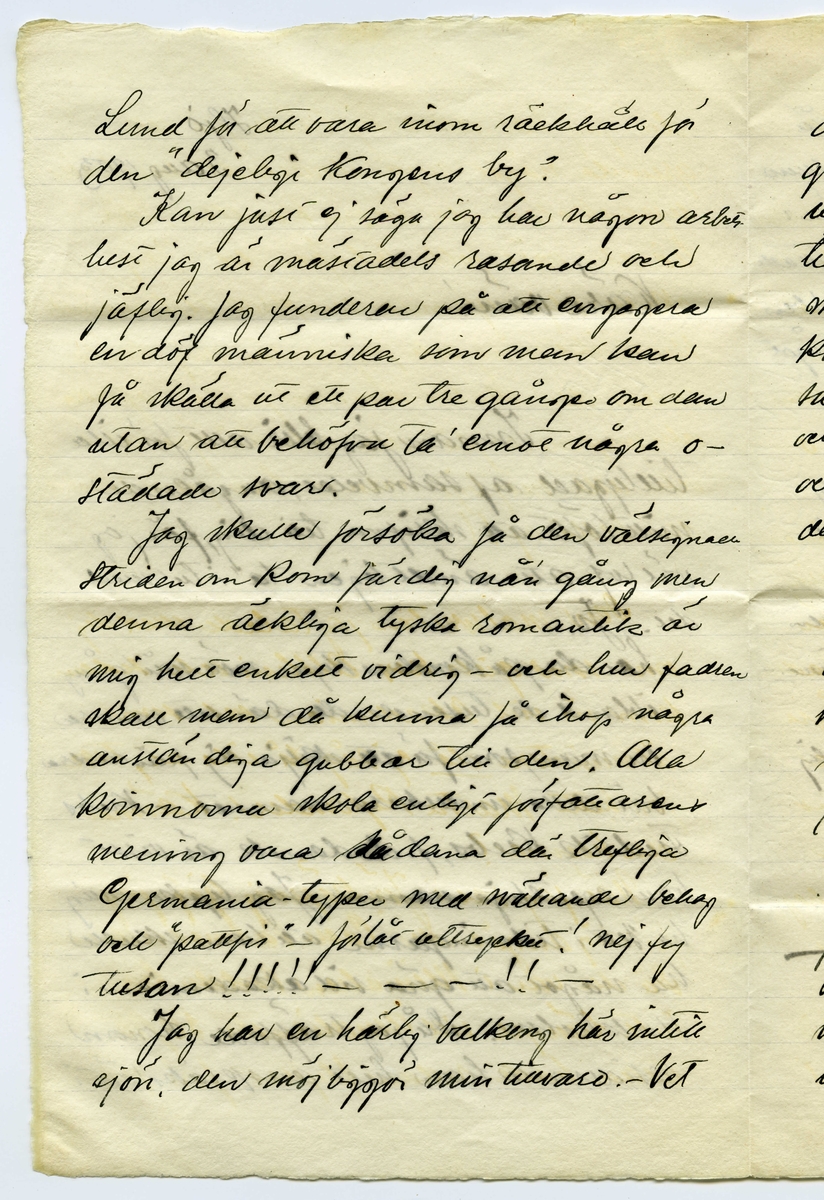 Lund för att vara inom räckhåll för
den "dejelige Kongens by".
Kan just ej säga jag har någon arbets
lust jag är mästadels rasande och
jäflig. Jag funderar på att engagera
en döf människa som man kan
få skälla ut ett par tre gånger om dan
utan att behöfva ta' emot några o-
städade svar.
Jag skulle försöka få den välsignade
Striden om Rom färdig nå'n gång men
denna äckliga tyska romantik är
mig helt enkelt vidrig – och hur fadren
skall man då kunna få ihop några
anständiga gubbar till den. Alla
kvinnorna skola enligt författarens
mening vara sådana där trefliga
Germania-typer med svällande behag
och "pattfis" – förlåt uttrycket! nej fy
tusan !!!!! — — — !! —
Jag har en härlig balkong här intill
sjön, den möjliggör min tillvaro. – Vet